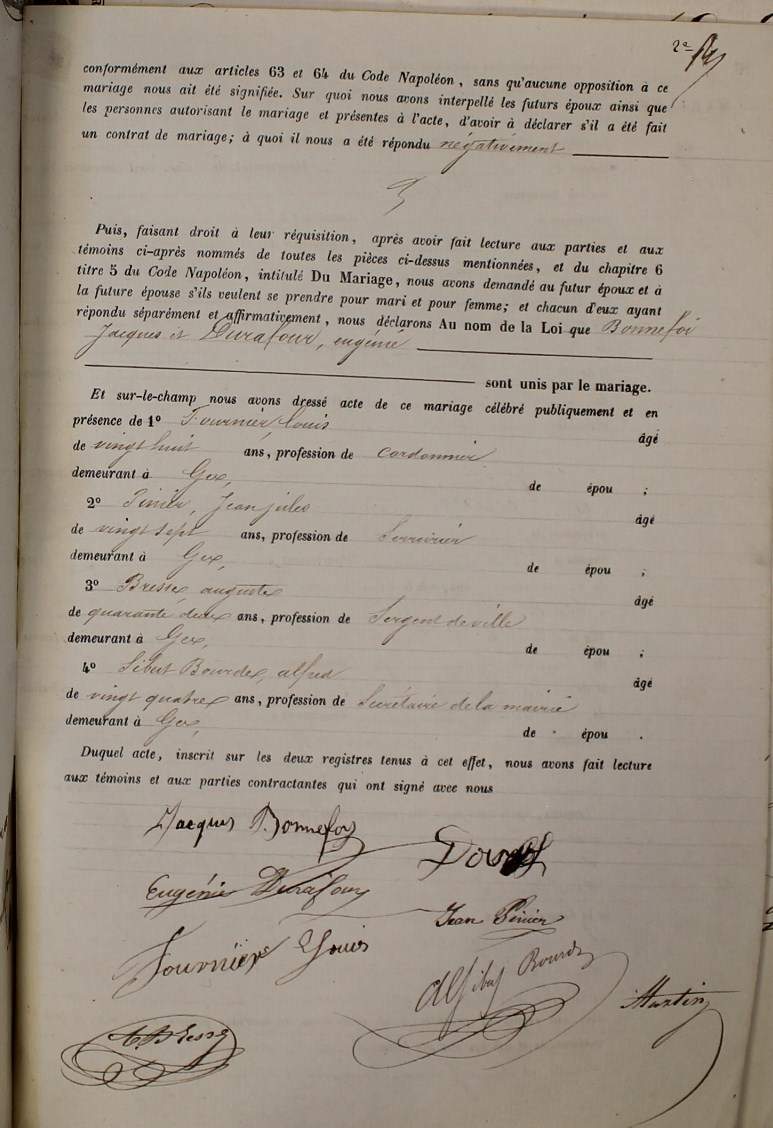 2e
conformément aux articles 63 et 64 du Code Napoléon, sans qu'aucune opposition à ce
mariage nous ait été signifiée. Sur quoi nous avons interpellé les futurs époux ainsi que
les personnes autorisant le mariage et présentes à l'acte, d'avoir à déclarer s'il a été fait
un contrat de mariage; à quoi il nous a été répondu négativement
Puis, faisant droit à leur réquisition, après avoir fait lecture aux parties et aux
témoins ci-après nommés de toutes les pièces ci-dessus mentionnées, et du chapitre 6
titre 5 du Code Napoléon, intitulé Du Mariage, nous avons demandé au futur époux et à
la future épouse s'ils veulent se prendre pour mari et pour femme; et chacun d'eux ayant
répondu séparément et affirmativement, nous déclarons Au nom de la Loi que Bonnefoi
Jacques et Durafour, eugénie
sont unis par le mariage.
Et sur-le-champ nous avons dressé acte de ce mariage célébré publiquement et en
présence de 1o Fournier, Louis âgé
de vingt huit ans, profession de cordonnier
demeurant à Gex, de épou ;
2o Jean jules âgé
de vingt sept ans, profession de Serrurier
demeurant à Gex, de épou ;
3o Bresse, auguste âgé
de quarante deux ans, profession de Sergent de ville
demeurant à Gex, de épou ;
4o Sibut Bourde, alfred âgé
de vingt quatre ans, profession de Secrétaire de la mairie
demeurant à Gex, de épou .
Duquel acte, inscrit sur les deux registres tenus à cet effet, nous avons fait lecture
aux témoins et aux parties contractantes qui ont signé avec nous
Jacques Bonnefoy
Eugénie Durafour
Jean Pinier
Fournier Louis
A Sibut Bourde
Martin
A. Bresse